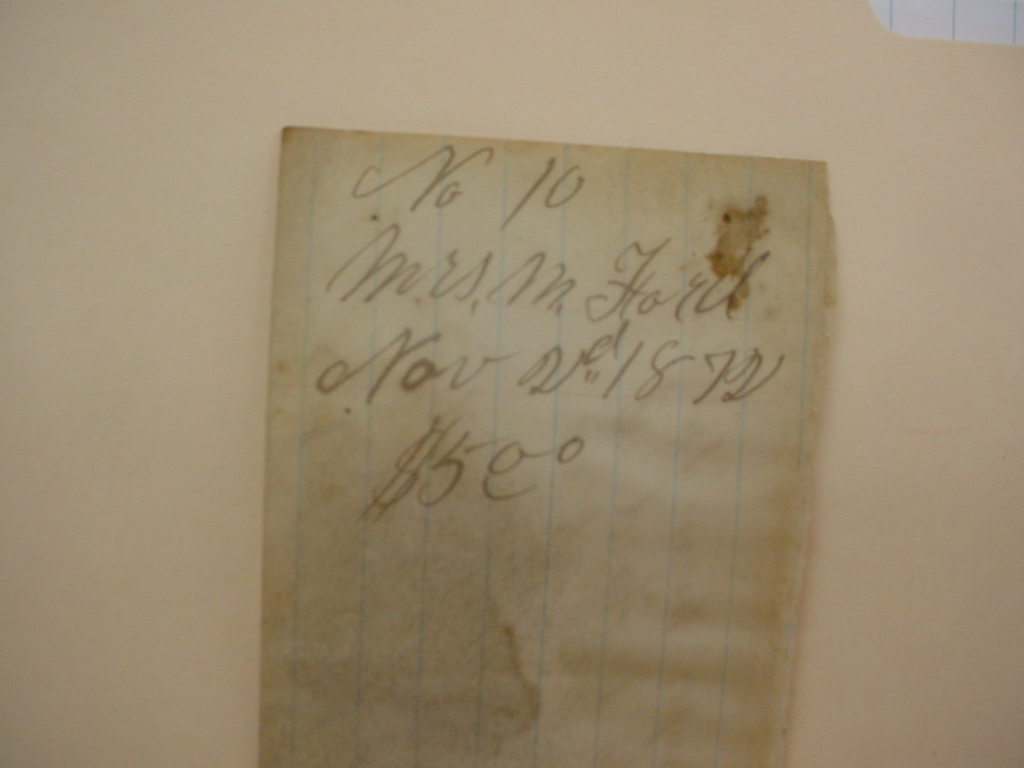 No 10
Mrs. M. Ford
Nov 2d 1872
$500